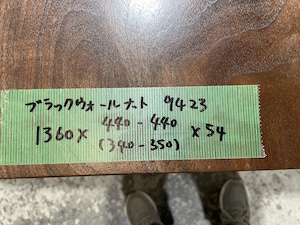 ブラックウォールナット 9423
440-440
1360× ×54
(340-350)